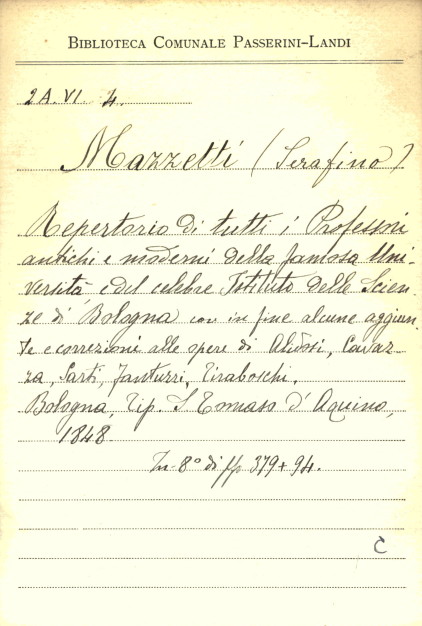 BIBLIOTECA COMUNALE PASSERINI-LANDI
2A. VI. 4.
Mazzetti (Serafino)
Repertorio di tutti i Professori
antichi e moderni della famosa Uni-
versità, e del celebre Istituto delle Scien-
ze di Bologna con in fine alcune aggiun-
te e correzioni alle opere di Alidosi, Cavaz-
za, Sarti, Fantuzzi, Tiraboschi.
Bologna, Tip. S. Tomaso d'Aquino,
1848
In-8° di pp. 379+94.
C